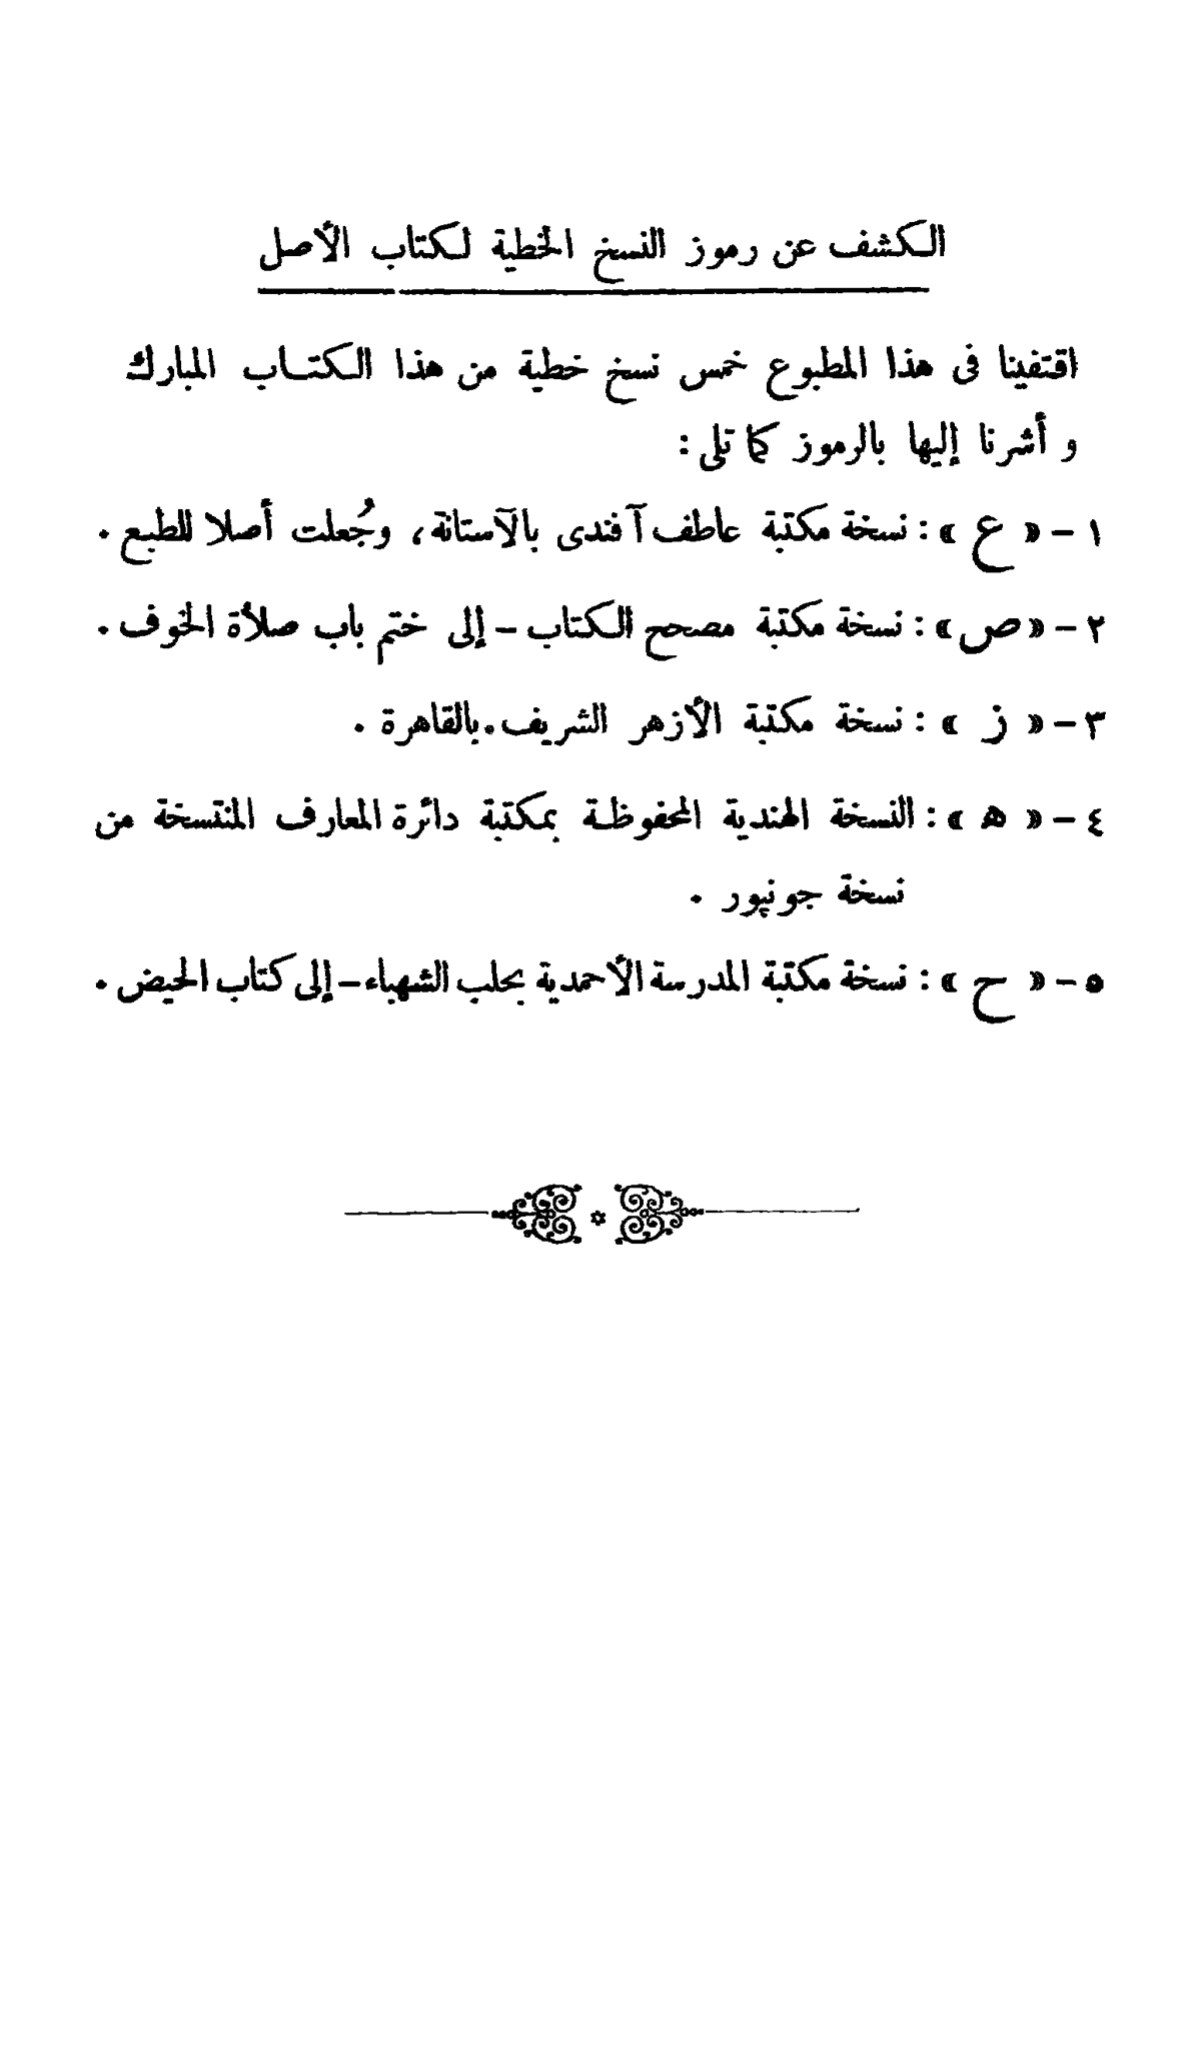 الكشف عن رموز النسخ الخطية لكتاب الأصل
اقتفينا فى هذا المطبوع خمس نسخ خطية من هذا الكتاب المبارك
و أشرنا إليها بالرموز كما تلى :
١ – « ع » : نسخة مكتبة عاطف آفندى بالآستانة ، وجُعلت أصلا للطبع .
٢ – « ص » : نسخة مكتبة مصحح الكتاب – إلى ختم باب صلاة الخوف .
٣ – « ز » : نسخة مكتبة الأزهر الشريف . بالقاهرة .
٤ – « ه » : النسخة الهندية المحفوظة بمكتبة دائرة المعارف المنتسخة من
نسخة جونپور .
٥ – « ح » : نسخة مكتبة المدرسة الأحمدية بحلب الشهباء – إلى كتاب الحيض .